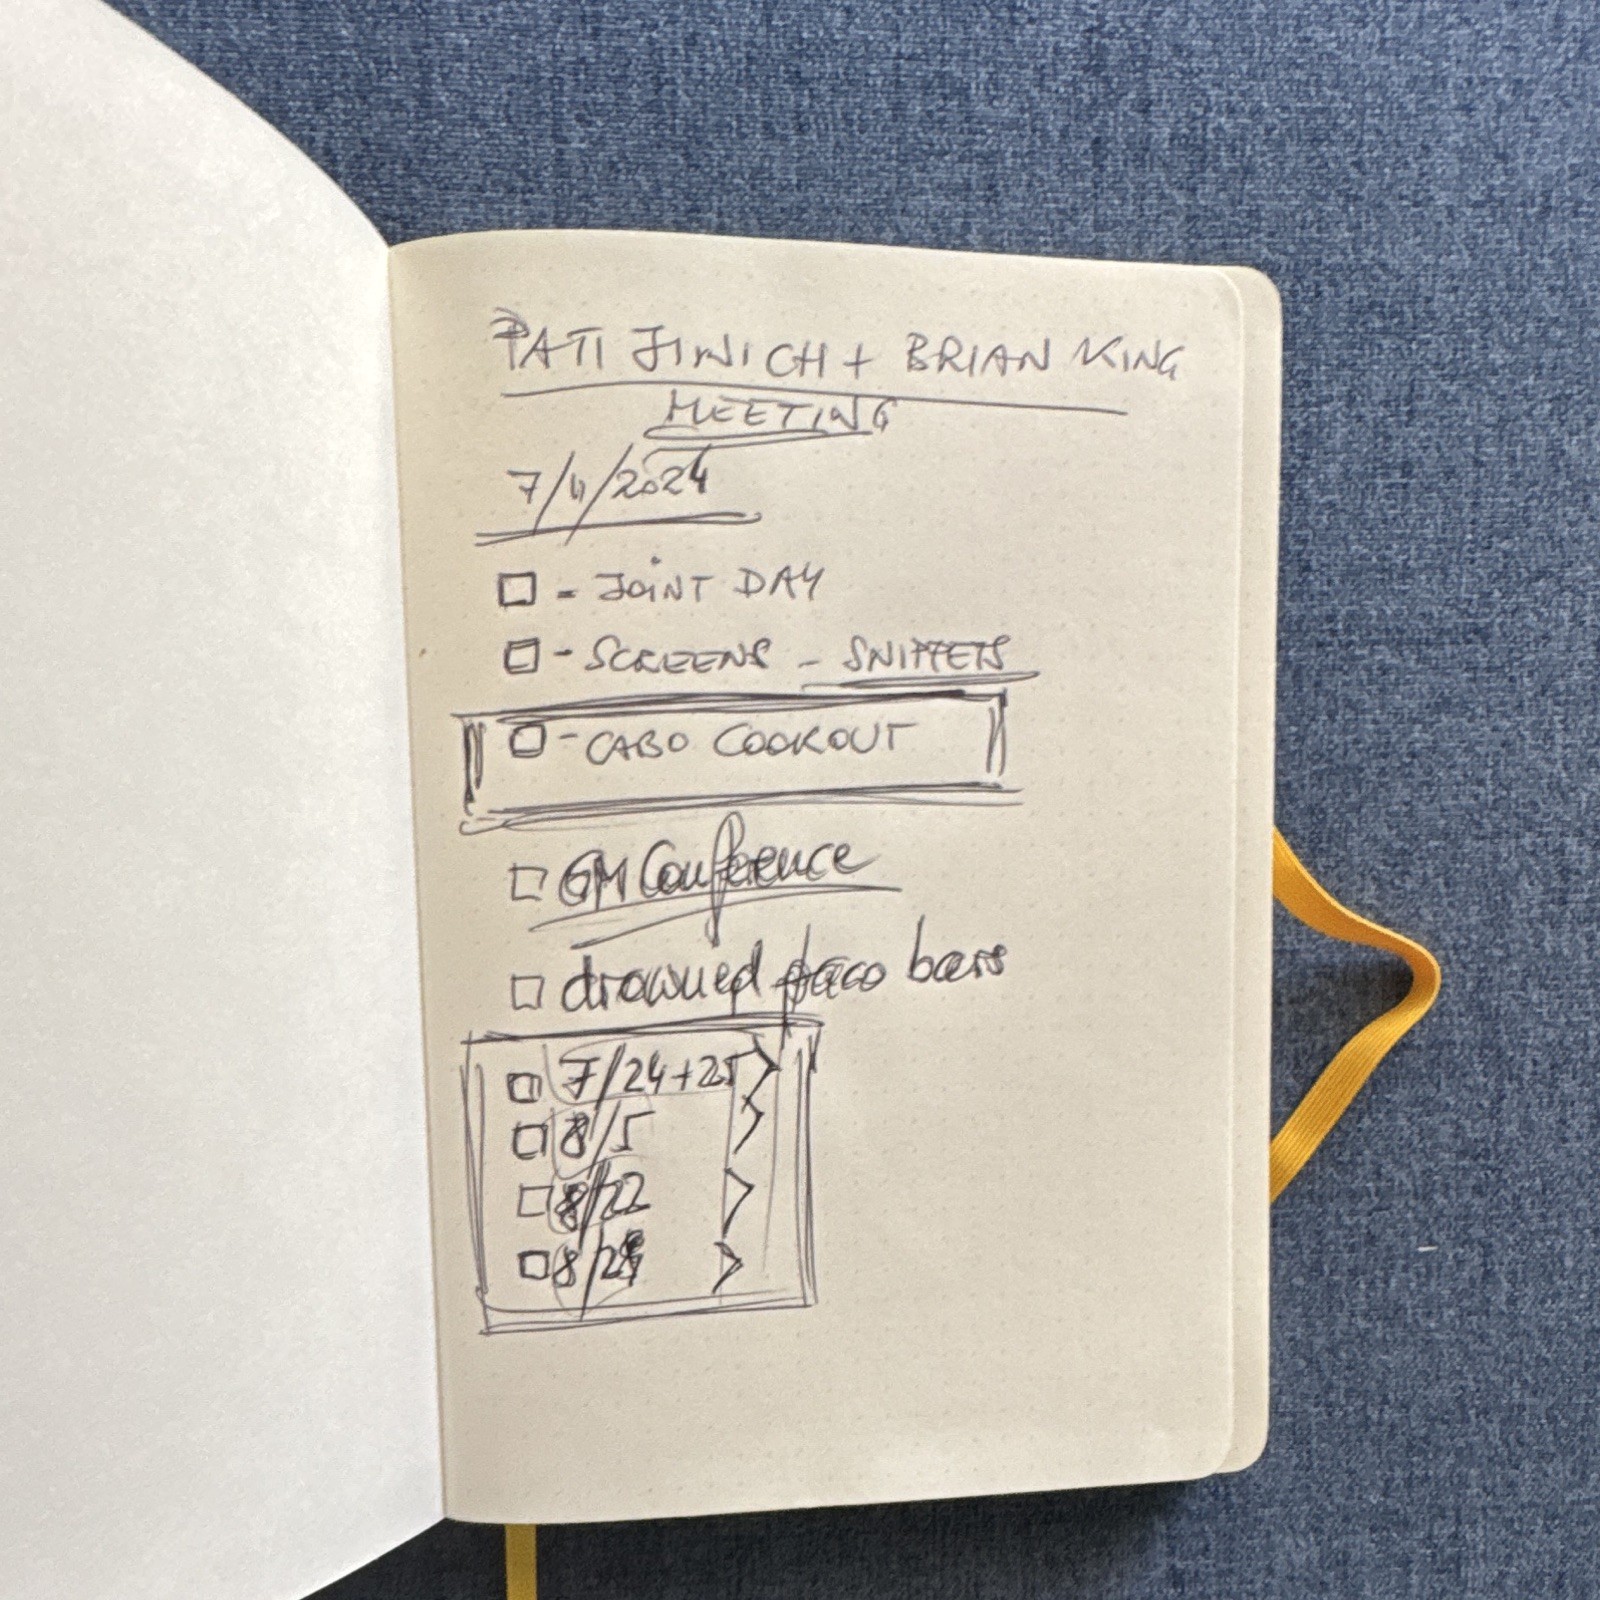 PATI JINICH + BRIAN KING
MEETING
7/11/2024
- JOINT DAY
- SCREENS - SNIPPETS
- CABO COOKOUT
GM Conference
drowned taco bars
7/24+25
8/5
8/22
8/28